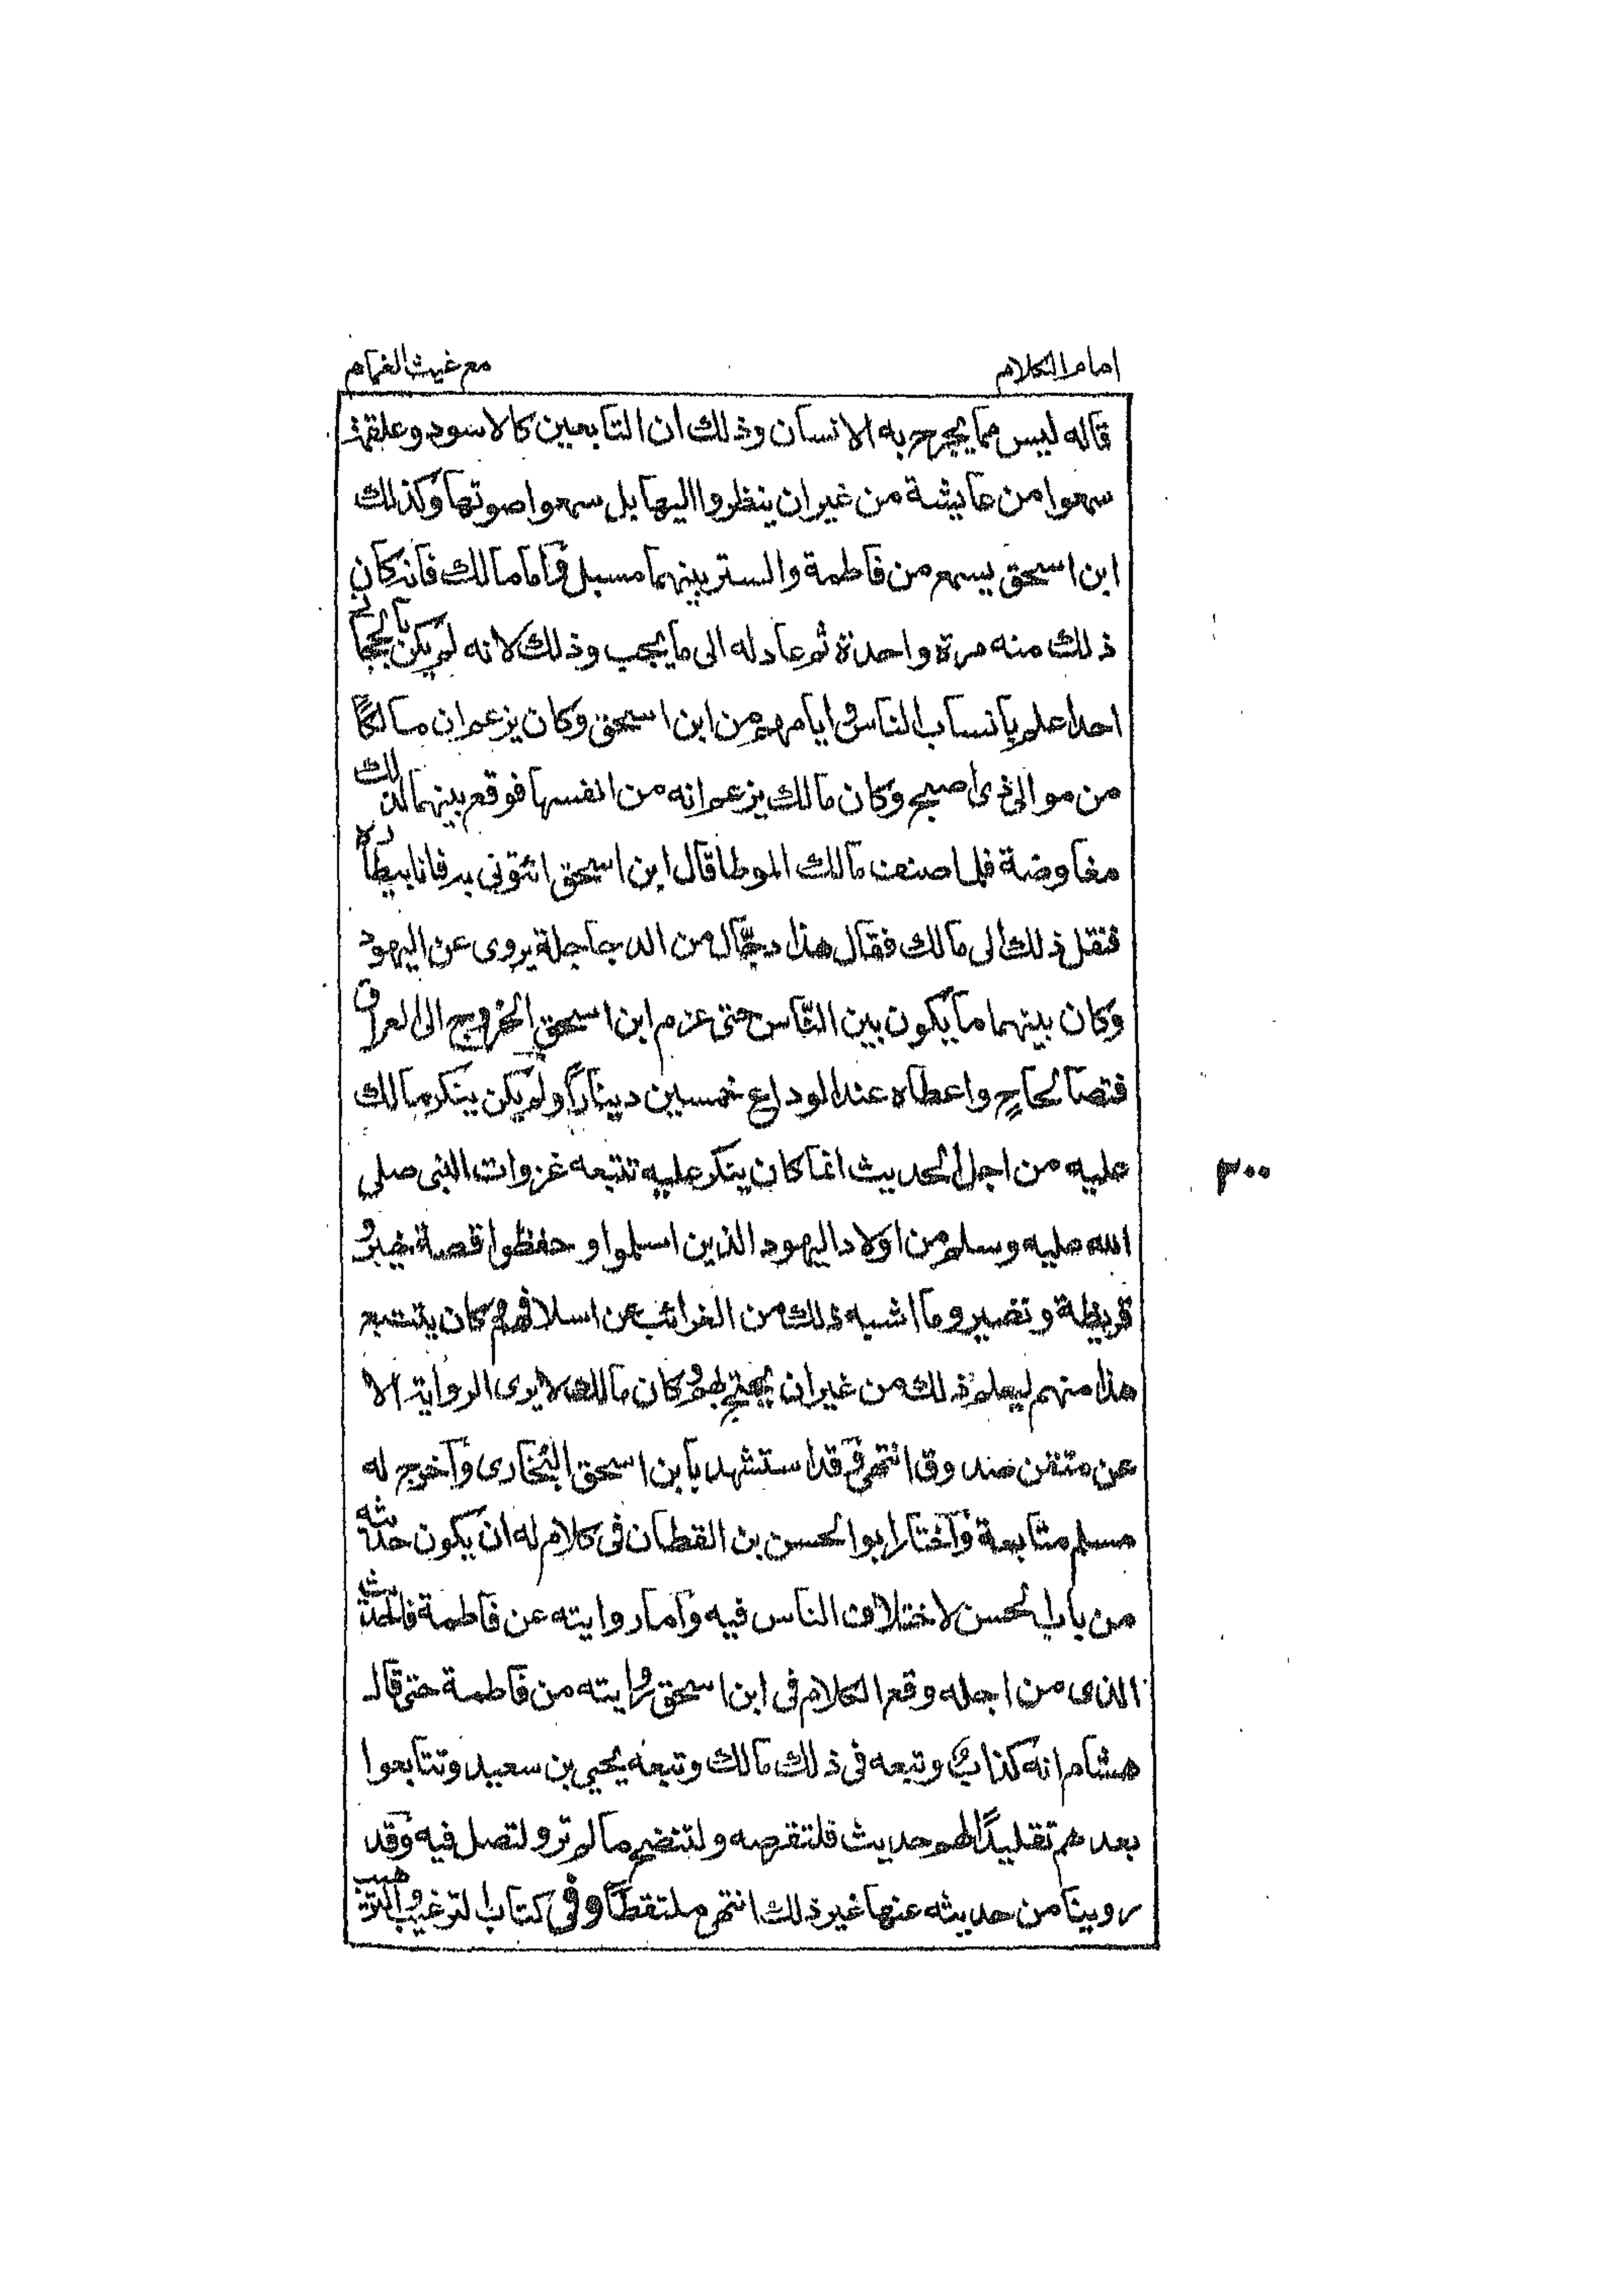 امام الكلام
مع غيث الغمام
قاله ليس مما يجرح به الانسان وذلك ان التابعين كالاسود وعلقمة
سمعوا من عايشة من غير ان ينظروا اليها بل سمعوا صوتها وكذلك
ابن اسحق يسمع من فاطمة والستر بينهما مسبل واما مالك فانه كان
ذلك منه مرة واحدة ثم عاد له الى ما يجب وذلك لانه لم يكن بالحجاز
احدا علم بانساب الناس وايامهم من ابن اسحق وكان يزعم ان مالكا
من موالى ذى اصبح وكان مالك يزعم انه من انفسها فوقع بينهما لذلك
مفاوضة فلما صنف مالك الموطا قال ابن اسحق ائتونى به فانا بيطاره
فنقل ذلك الى مالك فقال هذا دجّال من الدجاجلة يروى عن اليهود
وكان بينهما ما يكون بين النّاس حتى عزم ابن اسحق الخروج الى العراق
فتصالحا ج واعطاه عند الوداع خمسين دينارًا ولم يكن ينكر مالك
عليه من اجل الحديث انما كان ينكر عليه تتبعه غزوات النبى صلى
٣٠٠
الله عليه وسلم من اولاد اليهود الذين اسلموا و حفظوا قصة خيبر و
قريظة و نضير وما اشبه ذلك من الغرائب عن اسلافهم وكان يتتبع
هذا منهم ليعلم ذلك من غير ان يحتج بهم وكان مالك لا يرى الرواية الا
عن متقن صدوق انتهى وقد استشهد بابن اسحق البخارى واخرج له
مسلم متابعة واختار ابو الحسن بن القطان فى كلام له ان يكون حديثه
من باب الحسن لاختلاف الناس فيه واما روايته عن فاطمة فالحديث
الذى من اجله وقع الكلام فى ابن اسحق روايته من فاطمة حتى قال
هشام انه كذاب و وتبعه فى ذلك مالك وتبعه يحيى بن سعيد وتتابعوا
بعدهم تقليدًا لهم حديث فلتقرصه ولتنضح ما لم تر ولتصل فيه وقد
روينا من حديثه عنها غير ذلك انتهى ملتقطا وفى كتاب الترغيب والترهيب